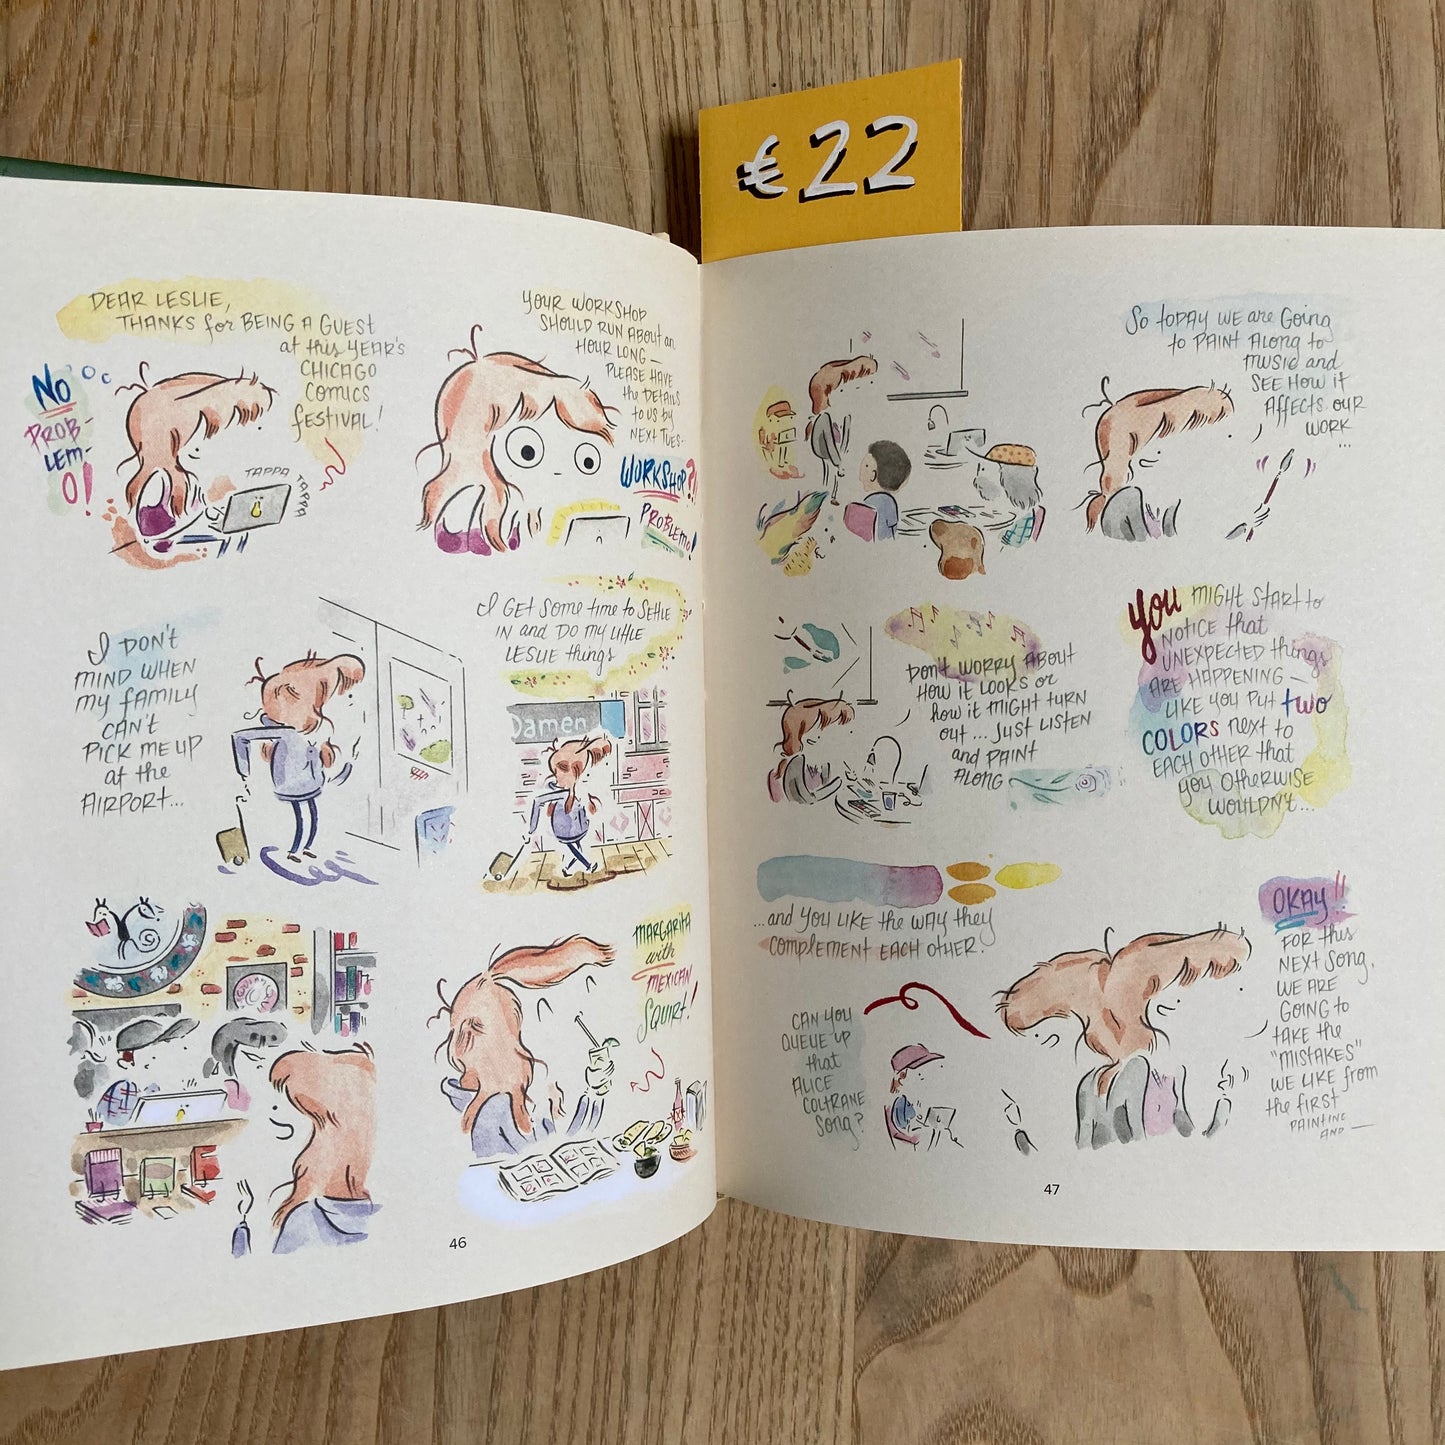 €22
DEAR LESLIE,
THANKS for BEING A GUEST
at this YEAR'S
CHICAGO
COMICS
FESTIVAL!
NO
PROB-
LEM-
O!
TAPPA
TAPPA
YOUR WORKSHOP
SHOULD RUN ABOUT an
HOUR LONG —
PLEASE HAVE
the DETAILS
to US by
NEXT TUES-
WORKSHOP?!
PROBLEMO!
I DON'T
MIND WHEN
my FAMILY
CAN'T
PICK ME UP
at the
AIRPORT...
I GET some time to SETTLE
IN and DO MY LITTLE
LESLIE things
Damen
MARGARITA
with
MEXICAN
SQUIRT!
46
So TODAY WE are GOING
to PAINT ALONG to
MUSIC and
SEE HOW it
AFFECTS OUR
WORK
...
DON'T WORRY ABOUT
HOW it LOOKS or
how it MIGHT TURN
out... JUST LISTEN
and PAINT
ALONG
YOU MIGHT START to
NOTICE that
UNEXPECTED things
ARE HAPPENING —
LIKE YOU PUT two
COLORS next to
EACH OTHER that
you OTHERWISE
WOULDN'T...
...and YOU LIKE the WAY they
COMPLEMENT EACH OTHER.
CAN YOU
QUEUE UP
that
ALICE
COLTRANE
SONG?
OKAY!!
FOR this
NEXT SONG,
WE ARE
GOING to
TAKE the
"MISTAKES"
WE LIKE from
the FIRST
PAINTING
AND —
47